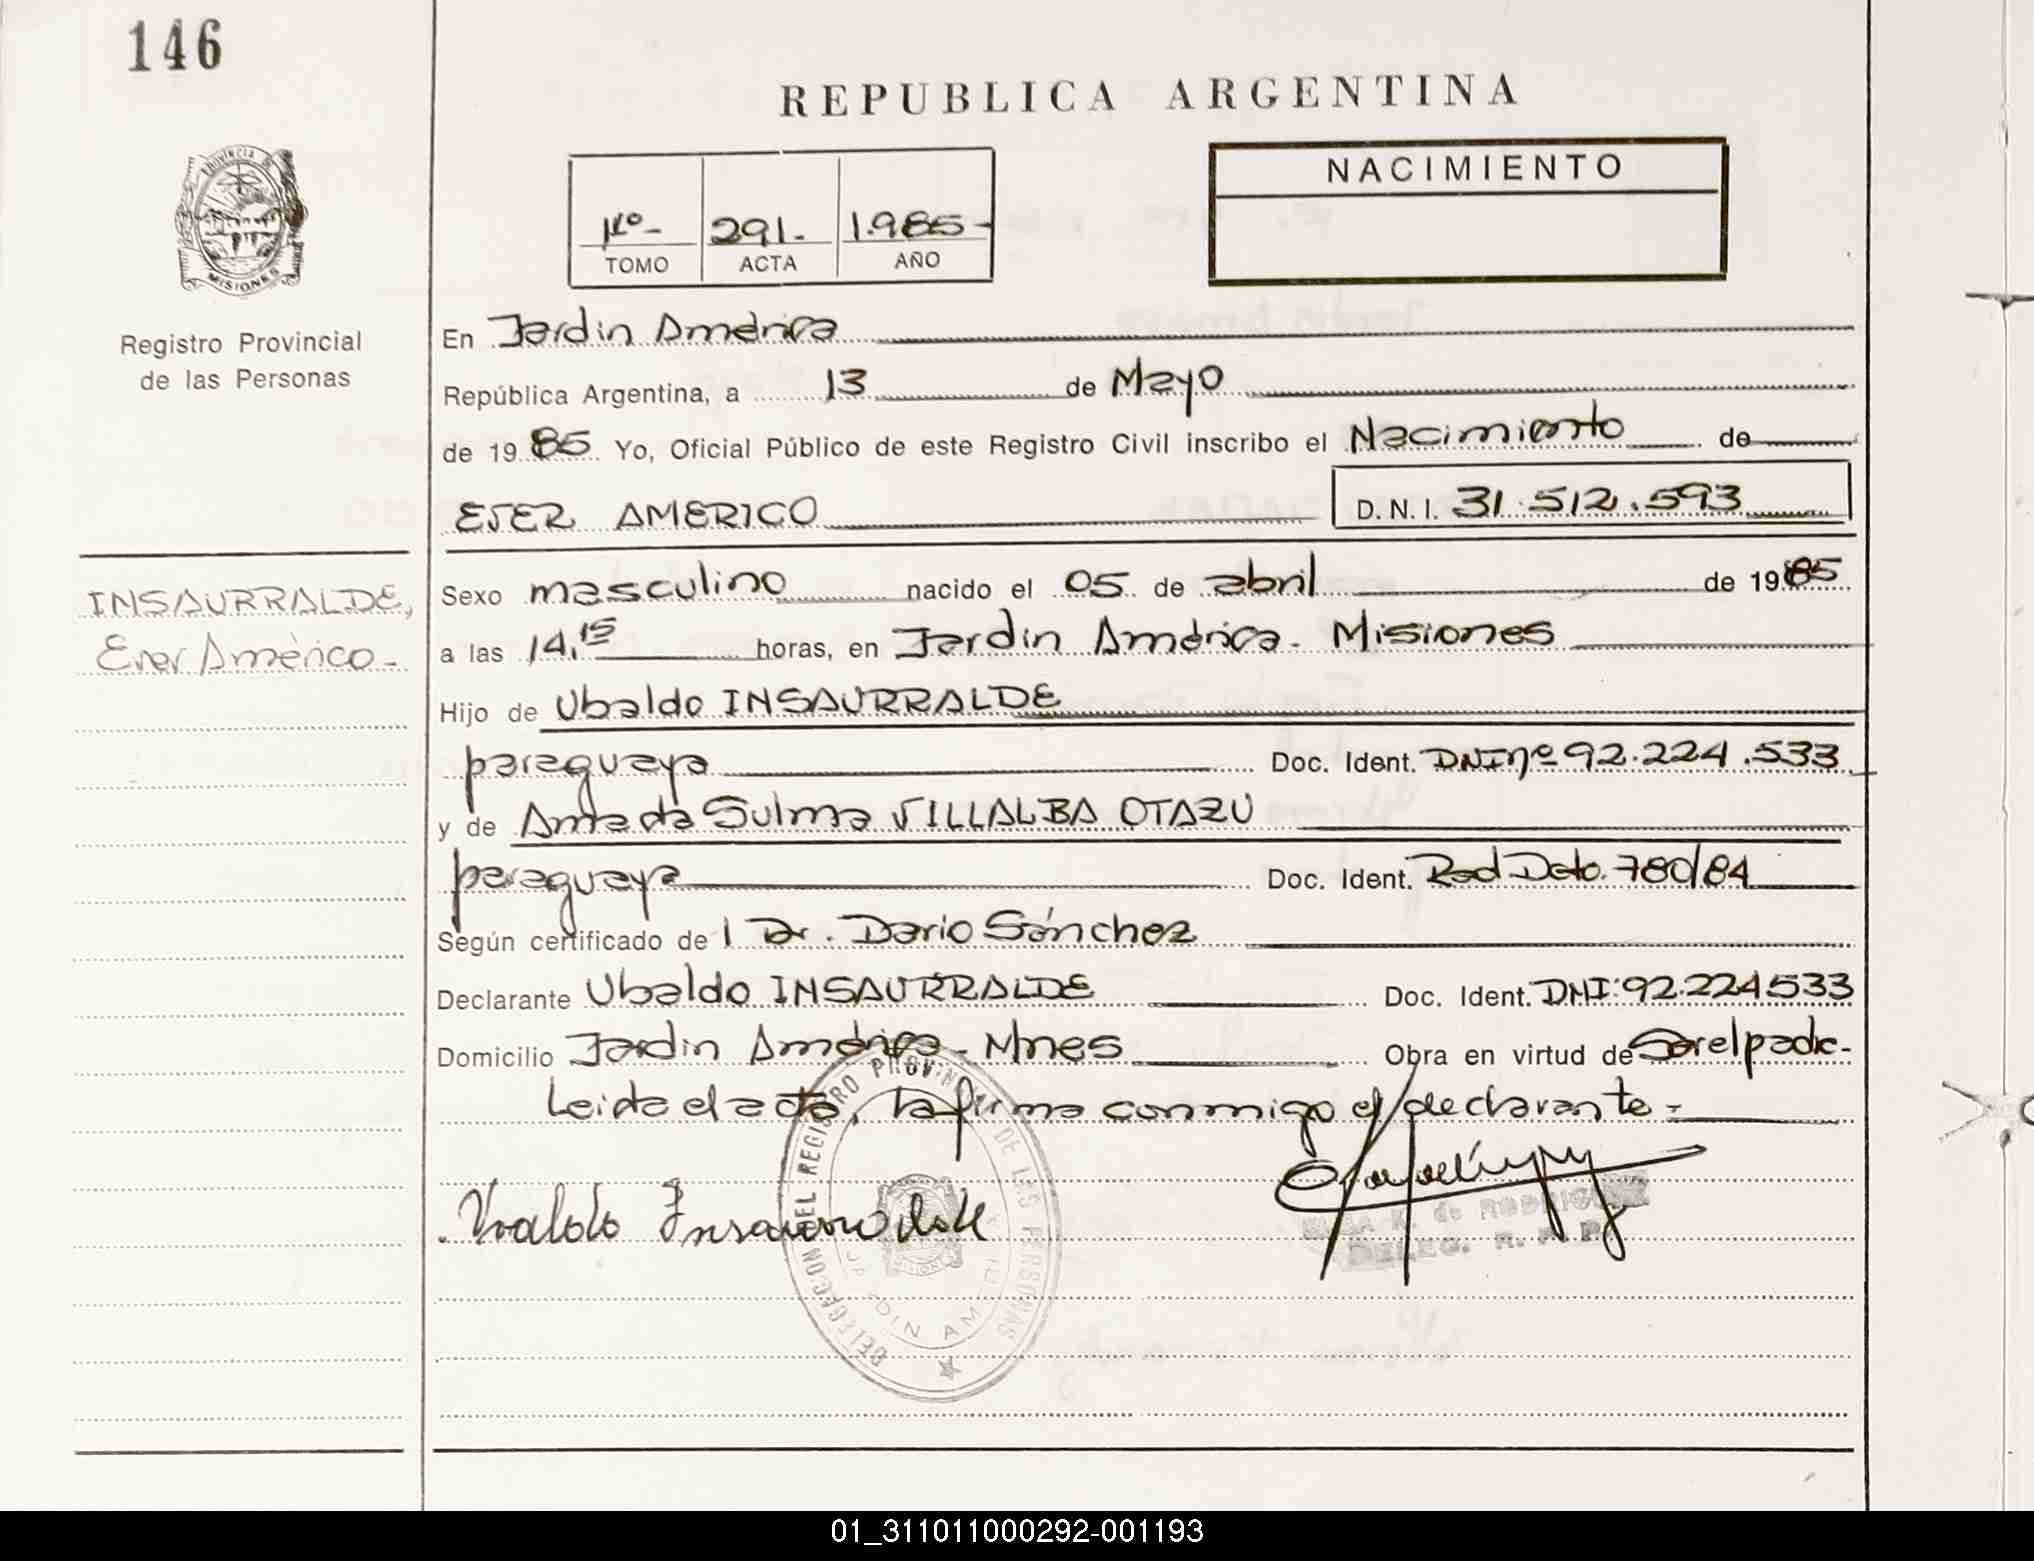 146
REPUBLICA ARGENTINA
NACIMIENTO
1º- 291.- 1.985-
TOMO ACTA AÑO
PROVINCIA DE
MISIONES
Registro Provincial
de las Personas
En Jardin América
República Argentina, a 13 de Mayo
de 19 85 Yo, Oficial Público de este Registro Civil inscribo el Nacimiento de
EVER AMERICO D.N.I. 31.512.593
INSAURRALDE,
Ever Américo.-
Sexo masculino nacido el 05 de abril de 1985
a las 14,15 horas, en Jardin América. Misiones
Hijo de Ubaldo INSAURRALDE
paraguaya Doc. Ident. DNI nº 92.224.533
y de Amada Sulma VILLALBA OTAZU
paraguaya Doc. Ident. Rad Dcto. 780/84
Según certificado de l Dr. Dario Sánchez
Declarante Ubaldo INSAURRALDE Doc. Ident. DNI: 92.224533
Domicilio Jardin América - Mnes Obra en virtud de Ser el padre-
Leida el acta, la firma conmigo el declarante.-
Uvaldo Insaurralde
DELEGACION DEL REGISTRO PROVINCIAL DE LAS PERSONAS
JARDIN AMERICA
K. de RODRIGUEZ
DELEG. R. P. P.
01_311011000292-001193